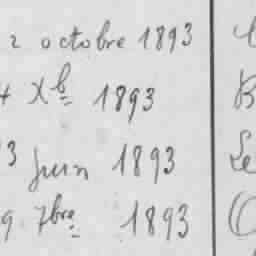 2 octobre 1893
4 Xb 1893
3 juin 1893
9 7bre 1893